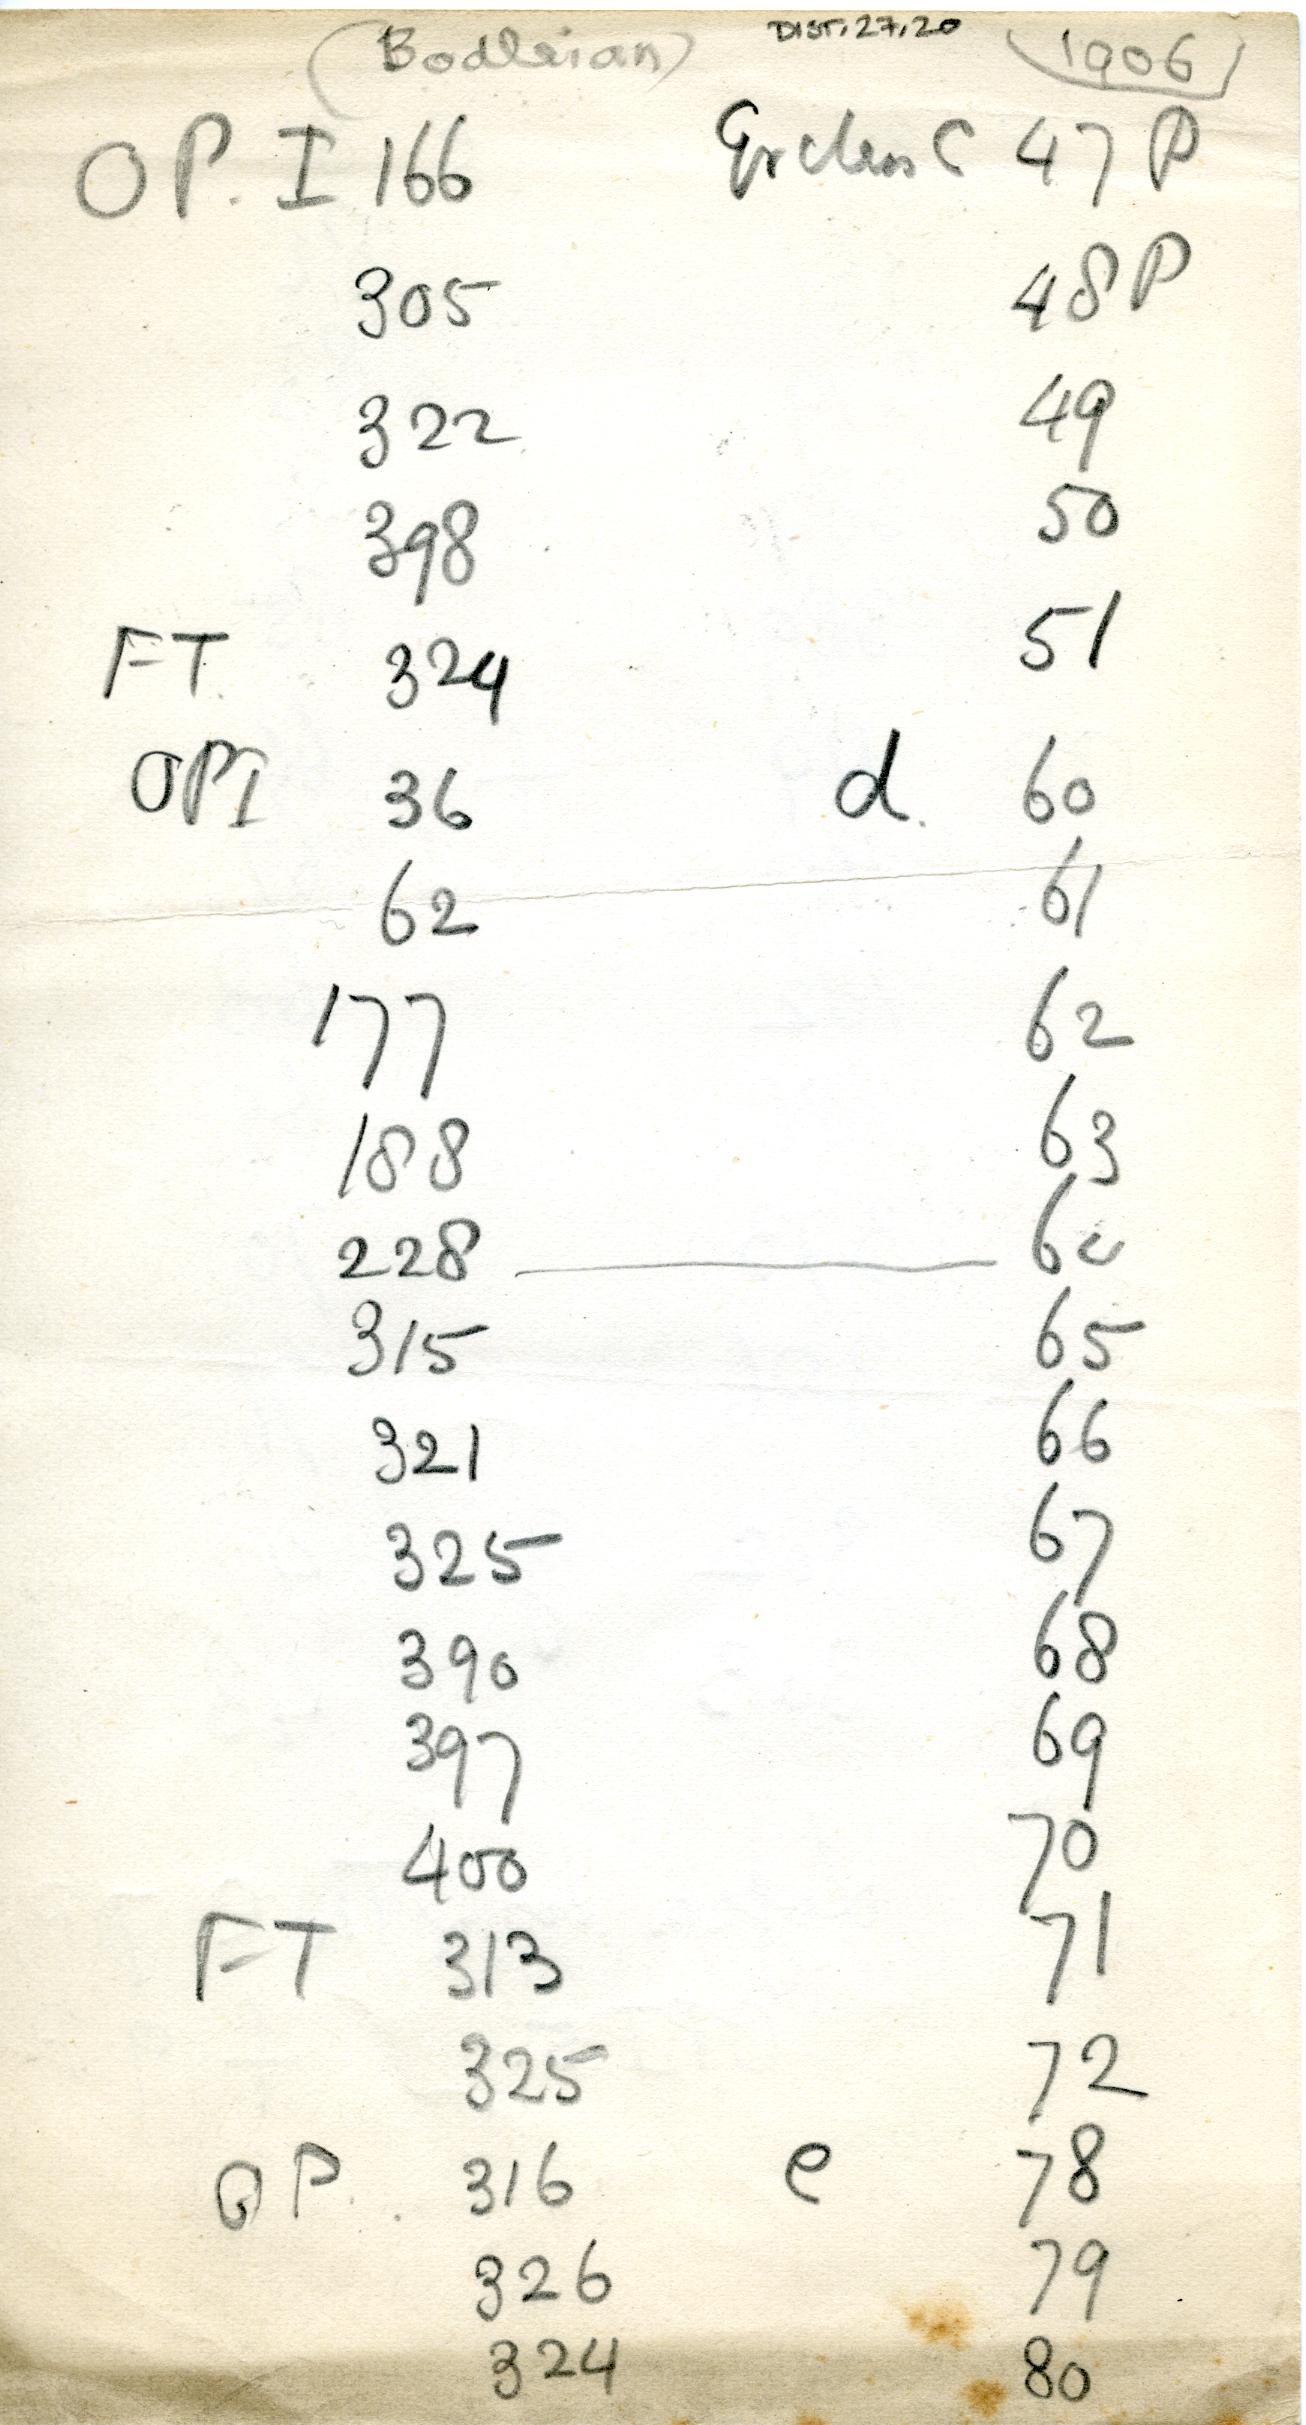 (Bodleian) DIST.27.20 (1906)
OP. I 166 Gr class C 47 P
305 48 P
322 49
398 50
FT. 324 51
OPI 36 d. 60
62 61
177 62
188 63
228 — 64
315 65
321 66
325 67
390 68
397 69
400 70
FT 313 71
325 72
OP. 316 e 78
326 79
324 80